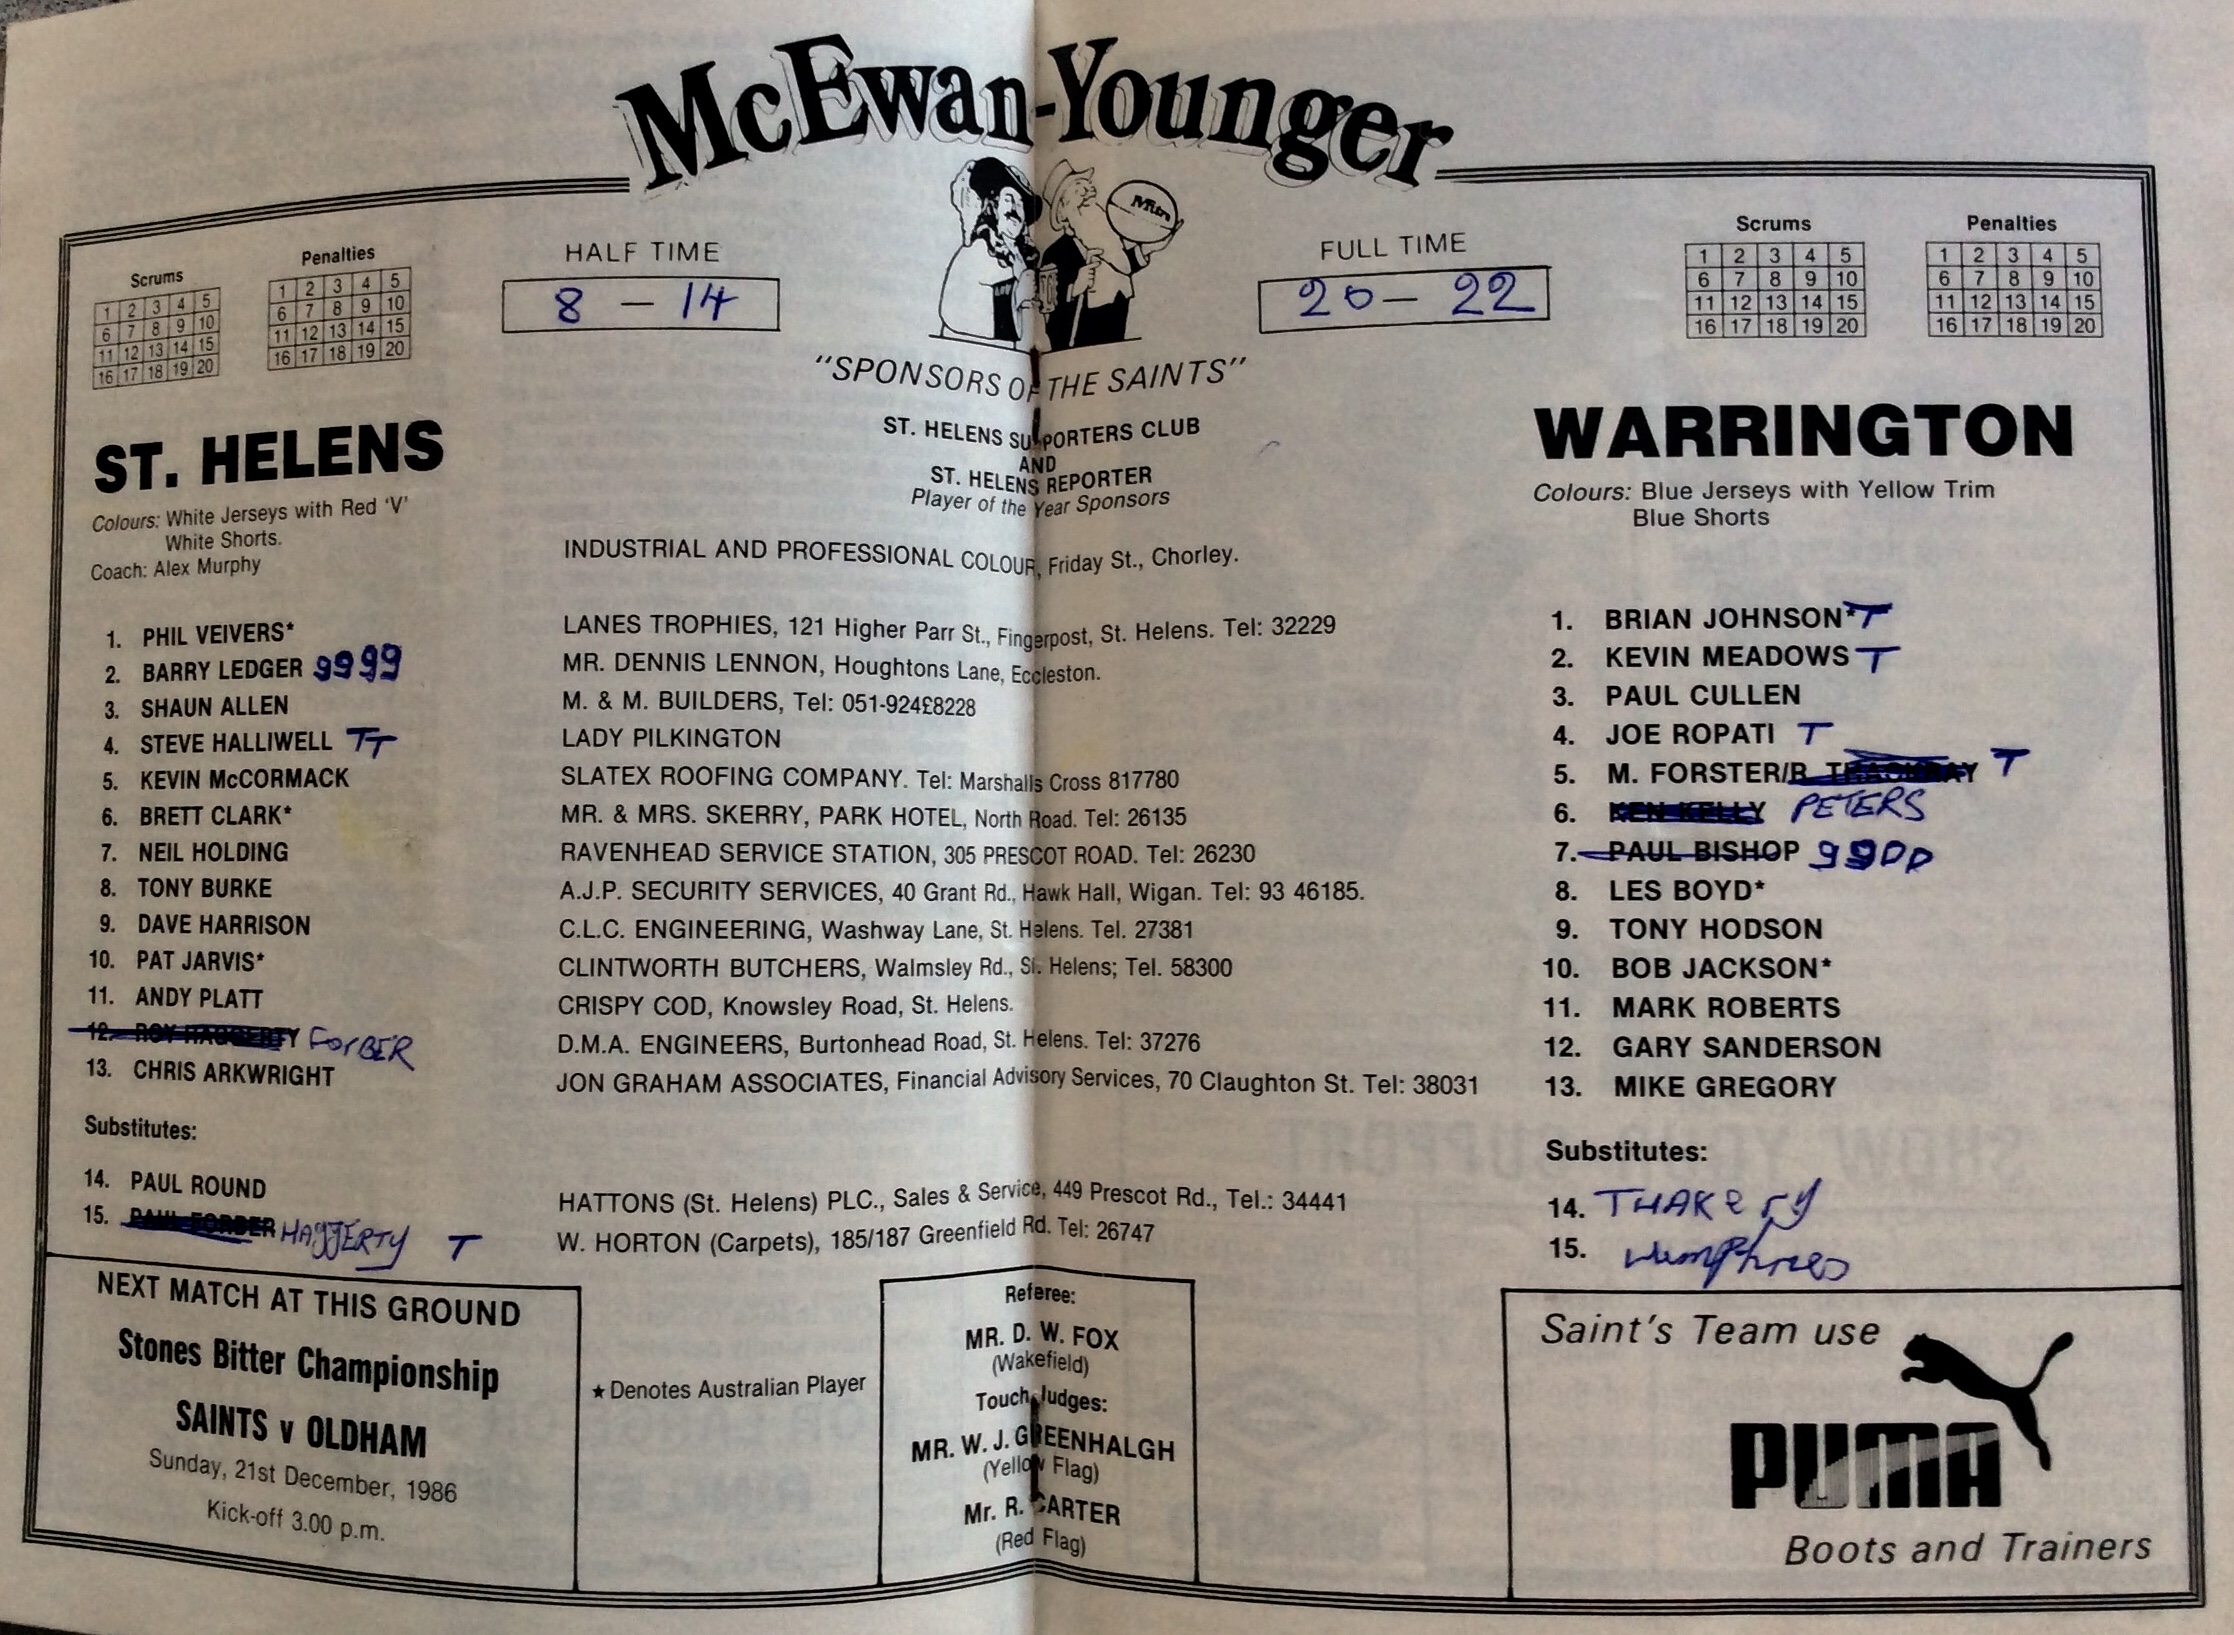 McEwan-Younger
Mitre
HALF TIME
8 - 14
FULL TIME
20 - 22
"SPONSORS OF THE SAINTS"
Scrums
1 2 3 4 5
6 7 8 9 10
11 12 13 14 15
16 17 18 19 20
Penalties
1 2 3 4 5
6 7 8 9 10
11 12 13 14 15
16 17 18 19 20
Scrums
1 2 3 4 5
6 7 8 9 10
11 12 13 14 15
16 17 18 19 20
Penalties
1 2 3 4 5
6 7 8 9 10
11 12 13 14 15
16 17 18 19 20
ST. HELENS
Colours: White Jerseys with Red 'V'
White Shorts.
Coach: Alex Murphy
ST. HELENS SUPPORTERS CLUB
AND
ST. HELENS REPORTER
Player of the Year Sponsors
WARRINGTON
Colours: Blue Jerseys with Yellow Trim
Blue Shorts
INDUSTRIAL AND PROFESSIONAL COLOUR, Friday St., Chorley.
1. PHIL VEIVERS*
2. BARRY LEDGER gggg
3. SHAUN ALLEN
4. STEVE HALLIWELL TT
5. KEVIN McCORMACK
6. BRETT CLARK*
7. NEIL HOLDING
8. TONY BURKE
9. DAVE HARRISON
10. PAT JARVIS*
11. ANDY PLATT
12. ROY HAGGERTY ForBER
13. CHRIS ARKWRIGHT
Substitutes:
14. PAUL ROUND
15. PAUL FORBER HAggERTY T
LANES TROPHIES, 121 Higher Parr St., Fingerpost, St. Helens. Tel: 32229
MR. DENNIS LENNON, Houghtons Lane, Eccleston.
M. & M. BUILDERS, Tel: 051-924£8228
LADY PILKINGTON
SLATEX ROOFING COMPANY. Tel: Marshalls Cross 817780
MR. & MRS. SKERRY, PARK HOTEL, North Road. Tel: 26135
RAVENHEAD SERVICE STATION, 305 PRESCOT ROAD. Tel: 26230
A.J.P. SECURITY SERVICES, 40 Grant Rd., Hawk Hall, Wigan. Tel: 93 46185.
C.L.C. ENGINEERING, Washway Lane, St. Helens. Tel. 27381
CLINTWORTH BUTCHERS, Walmsley Rd., St. Helens; Tel. 58300
CRISPY COD, Knowsley Road, St. Helens.
D.M.A. ENGINEERS, Burtonhead Road, St. Helens. Tel: 37276
JON GRAHAM ASSOCIATES, Financial Advisory Services, 70 Claughton St. Tel: 38031
HATTONS (St. Helens) PLC., Sales & Service, 449 Prescot Rd., Tel.: 34441
W. HORTON (Carpets), 185/187 Greenfield Rd. Tel: 26747
1. BRIAN JOHNSON* T
2. KEVIN MEADOWS T
3. PAUL CULLEN
4. JOE ROPATI T
5. M. FORSTER/R. THACKRAY T
6. KEN KELLY PETERS
7. PAUL BISHOP ggDD
8. LES BOYD*
9. TONY HODSON
10. BOB JACKSON*
11. MARK ROBERTS
12. GARY SANDERSON
13. MIKE GREGORY
Substitutes:
14. THAKERY
15. Humphries
NEXT MATCH AT THIS GROUND
Stones Bitter Championship
SAINTS v OLDHAM
Sunday, 21st December, 1986
Kick-off 3.00 p.m.
★ Denotes Australian Player
Referee:
MR. D. W. FOX
(Wakefield)
Touch Judges:
MR. W. J. GREENHALGH
(Yellow Flag)
Mr. R. CARTER
(Red Flag)
Saint's Team use
PUMA
Boots and Trainers